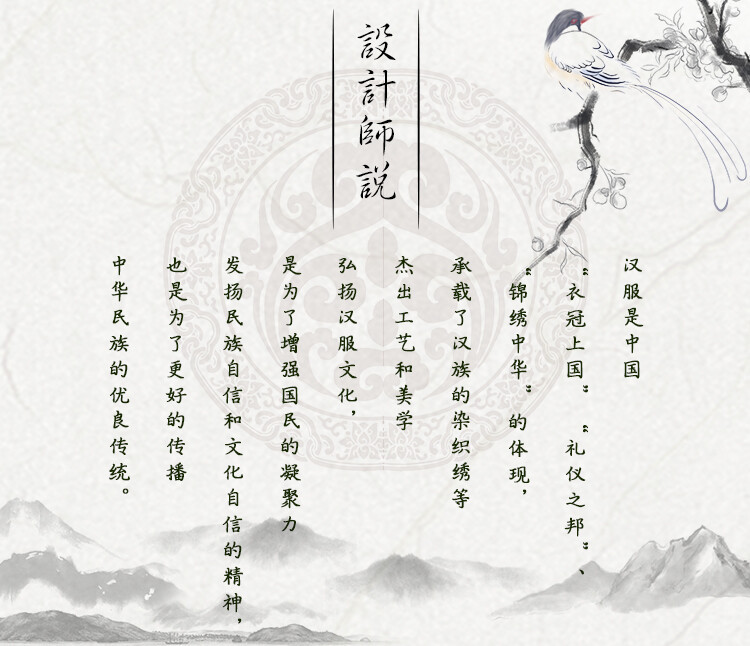 設計師説
汉服是中国
“衣冠上国”“礼仪之邦”、
“锦绣中华”的体现，
承载了汉族的染织绣等
杰出工艺和美学
弘扬汉服文化，
是为了增强国民的凝聚力
发扬民族自信和文化自信的精神，
也是为了更好的传播
中华民族的优良传统。